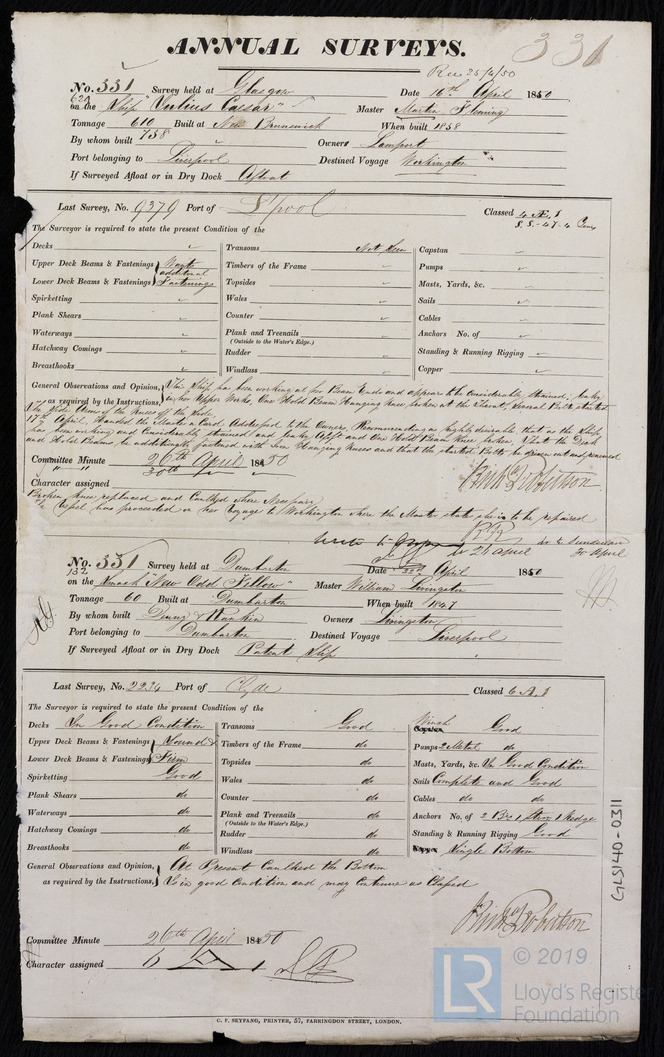 ANNUAL SURVEYS.
331
Rec 25/4/50
No. 331 Survey held at Glasgow Date 16th April 1850
on the Ship "Julius Caesar" Master Martin Fleming
Tonnage 610 Built at New Brunswick When built 1838
By whom built 738 Owners Lamport
Port belonging to Liverpool Destined Voyage Workington
If Surveyed Afloat or in Dry Dock Afloat
Last Survey, No. 9379 Port of L'pool Classed 4 Æ 1
S.S.-47-4
The Surveyor is required to state the present Condition of the
Decks Transoms Not seen Capstan
Upper Deck Beams & Fastenings Wants Timbers of the Frame Pumps
additional
Lower Deck Beams & Fastenings Fastenings Topsides Masts, Yards, &c.
Spirketting Wales Sails
Plank Shears Counter Cables
Waterways Plank and Treenails Anchors No. of
(Outside to the Water's Edge.)
Hatchway Comings Rudder Standing & Running Rigging
Breasthooks Windlass Copper
General Observations and Opinion, This Ship has been working at her Beam Ends and appears to be Considerably Strained, leaky
as required by the Instructions, in her Upper Works, One Hold Beam Hanging Knee broken at the Throat, several Bolts started
in the Side Arms of the Knees of the Side.
17th April, Handed the Master a Card Addressed to the Owners, Recommending as highly desirable that as the Ship
has been working and Considerably Strained and leaky Aloft and One Hold Beam Knee broken, That the Deck
and Hold Beams be additionally fastened with Iron Hanging Knees and that the started Bolts be driven out and renewed
Committee Minute 26th April 1850
" " 30th " "
Character assigned
Robertson
Broken Knee replaced and Caulked where Necessary
Vessel has proceeded on her Voyage to Workington where the Master states she is to be repaired
26 April
to Sunderland
30 April
No. 331 Survey held at Dumbarton Date April 1850
132
on the Smack "New Odd Fellow" Master William Livingston
Tonnage 60 Built at Dumbarton When built 1847
By whom built Denny & Rankin Owners Livingston
Port belonging to Dumbarton Destined Voyage Liverpool
If Surveyed Afloat or in Dry Dock Patent Slip
Last Survey, No. 2234 Port of Clyde Classed 6 A 1
The Surveyor is required to state the present Condition of the
Decks In Good Condition Transoms Good Winch Good
Upper Deck Beams & Fastenings Sound & Timbers of the Frame do Pumps 2 Metal do
Lower Deck Beams & Fastenings Firm Topsides do Masts, Yards, &c. In Good Condition
Spirketting Good Wales do Sails Complete and Good
Plank Shears do Counter do Cables do do
Waterways do Plank and Treenails do Anchors No. of 2 Bors 1 Strm 1 Kedge
(Outside to the Water's Edge.)
Hatchway Comings do Rudder do Standing & Running Rigging Good
Breasthooks do Windlass do Single Bottom
General Observations and Opinion, At Present Caulked the Bottom
as required by the Instructions, Is in good Condition and may Continue as Classed
Robertson
Committee Minute 26th April 1850
Character assigned 6 A 1
C. F. SEYFANG, PRINTER, 57, FARRINGDON STREET, LONDON.
GLS140-0311
LR
© 2019
Lloyd's Register
Foundation